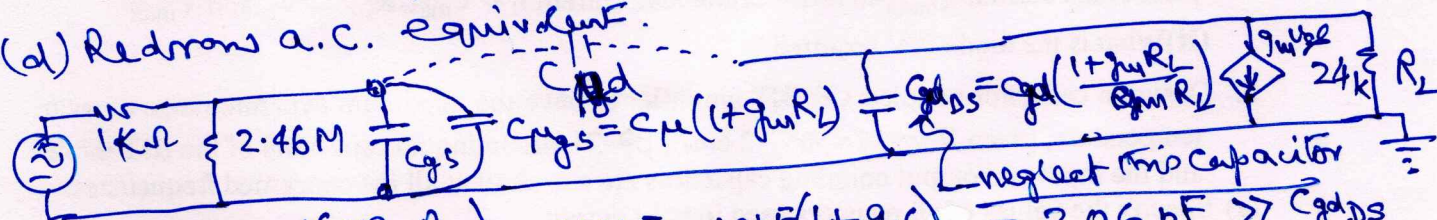 (d) Redraw a.c. equivalent.
Cgd
1KΩ
2.46M
Cgs
Cμgs = Cμ(1+gmRL)
CgdDS = Cgd(1+gmRL / gmRL)
gmVgs
24k
RL
neglect this capacitor
F(1+9 = 2.06 pF >> CgdDS